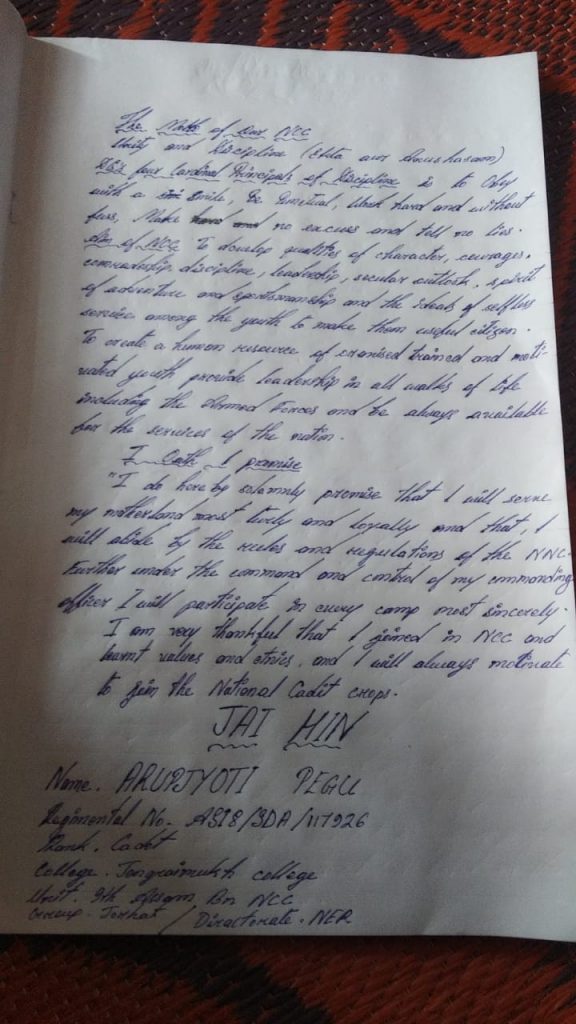 The Motto of Our NCC
Unity and Discipline (Ekta aur Anushasan)
It's four Cardinal Principals of Discipline is to Obey
with a smile, Be Punctual, Work hard and without
fuss, Make no excuses and tell no lies.
Aim of NCC To develop qualities of character, courages,
comradeship, discipline, leadership, secular outlook, spirit
of adventure and sportsmanship and the ideals of selfless
service among the youth to make them useful citizen.
To create a human resource of organised trained and moti-
vated youth provide leadership in all walks of life
including the Armed Forces and be always available
for the services of the nation.
I Oath I promise
"I do hereby solemnly promise that I will serve
my motherland most truly and loyally and that, I
will abide by the rules and regulations of the NNC.
Further under the command and control of my commanding
officer I will participate in every camp most sincerely.
I am very thankful that I joined in NCC and
learnt values and ethics, and I will always motivate
to join the National Cadit crops.
JAI HIN
Name. ARUPJYOTI PEGU
Regimental No. AS18/SDA/117926
Rank. Cadet
College. Jengraimukh college
Unit. 9th Assam Bn NCC
Group. Jorhat / Directorate. NER